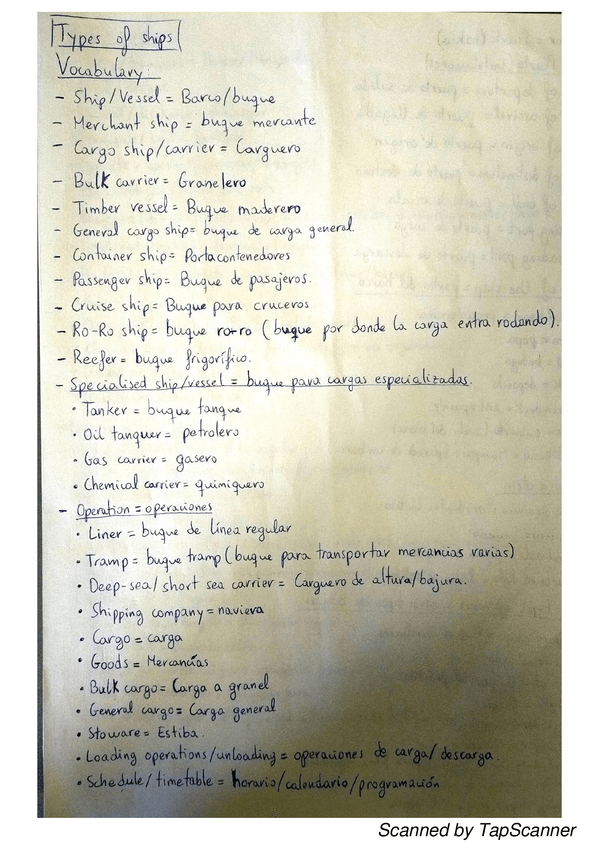 Types of ships
Vocabulary:
- Ship/Vessel = Barco/buque
- Merchant ship = buque mercante
- Cargo ship/carrier = Carguero
- Bulk carrier = Granelero
- Timber vessel = Buque maderero
- General cargo ship = buque de carga general.
- Container ship = Portacontenedores
- Passenger ship = Buque de pasajeros.
- Cruise ship = Buque para cruceros
- Ro-Ro ship = buque ro-ro (buque por donde la carga entra rodando).
- Reefer = buque frigorífico.
- Specialised ship/vessel = buque para cargas especializadas.
• Tanker = buque tanque
• Oil tanquer = petrolero
• Gas carrier = gasero
• Chemical carrier = quimiquero
- Operation = operaciones
• Liner = buque de línea regular
• Tramp = buque tramp (buque para transportar mercancias varias)
• Deep-sea/short sea carrier = Carguero de altura/bajura.
• Shipping company = naviera
• Cargo = carga
• Goods = Mercancías
• Bulk cargo = Carga a granel
• General cargo = Carga general
• Stoware = Estiba.
• Loading operations/unloading = operaciones de carga/descarga.
• Schedule/timetable = horario/calendario/programación
Scanned by TapScanner